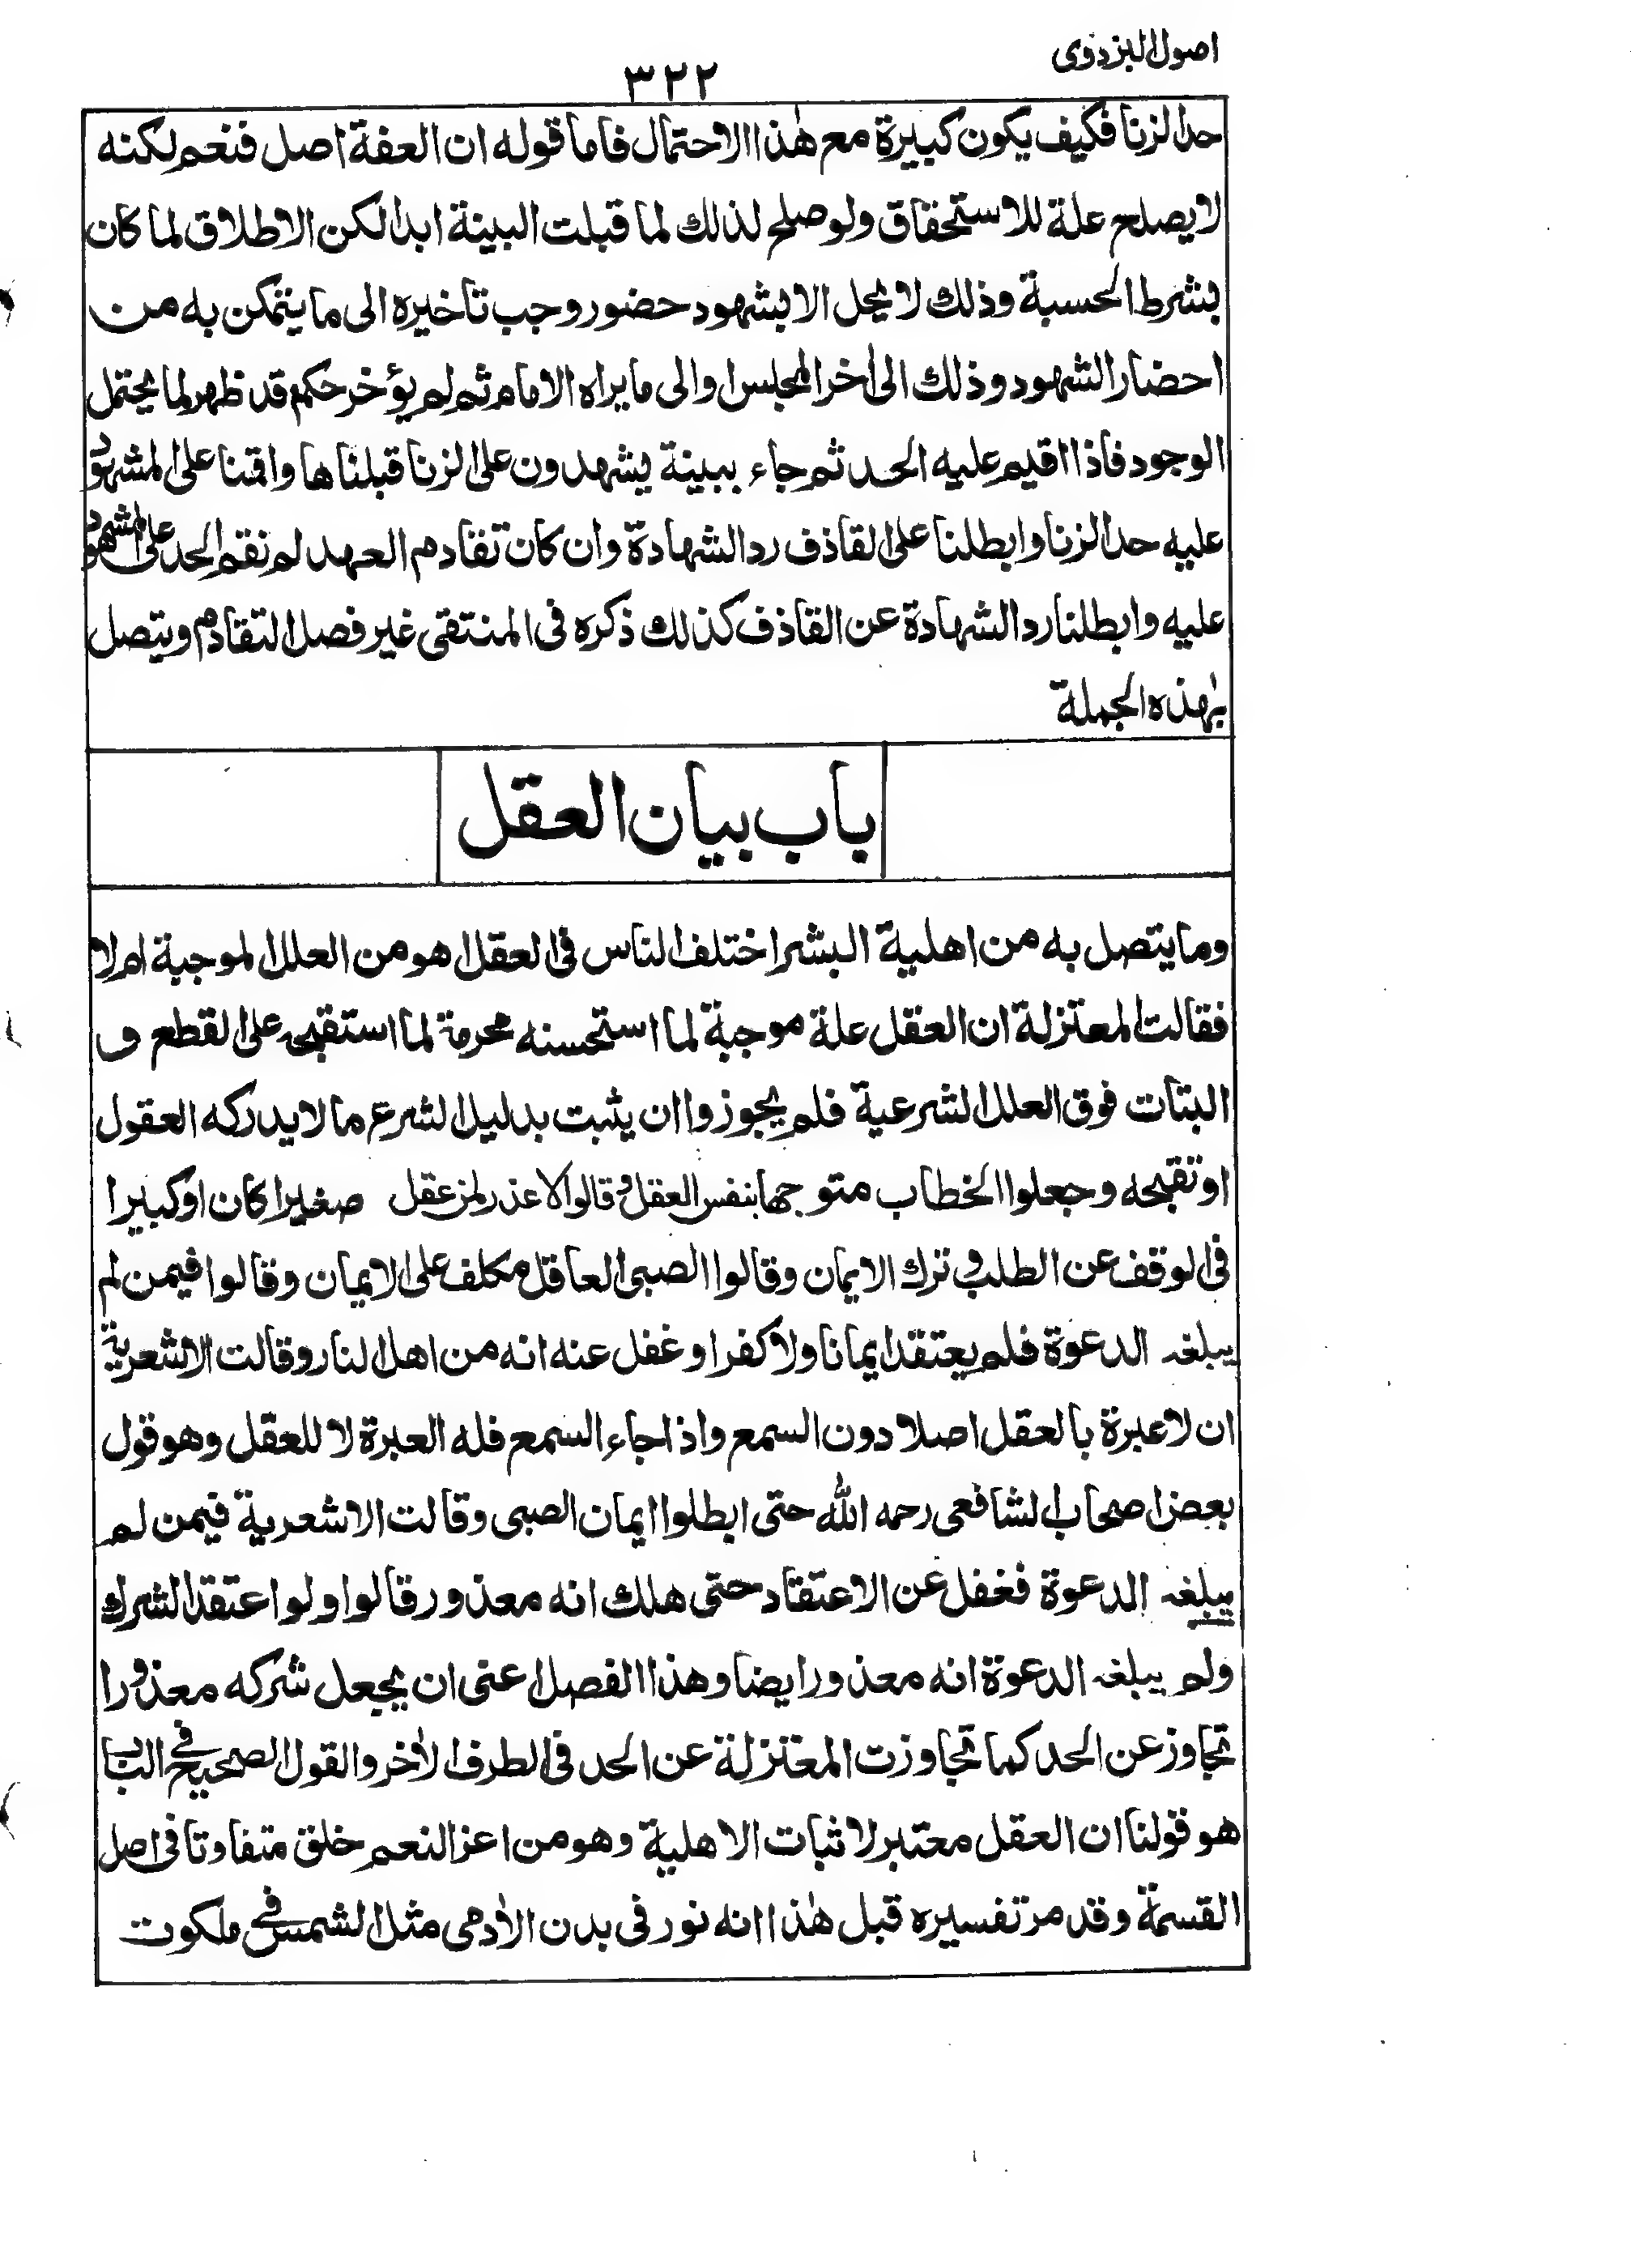 اصول البزدوی
٣٢٢
حد الزنا فكيف يكون كبيرة مع هٰذا الاحتمال فاما قوله ان العفة اصل فنعم لكنه
لا يصلح علة للاستحقاق ولو صلح لذلك لما قبلت البينة ابدا لكن الاطلاق لما كان
بشرط الحسبة وذلك لا يحل الا بشهود حضور وجب تاخيره الى ما يتمكن به من
احضار الشهود وذلك الى اٰخر المجلس او الى ما يراه الامام ثم لم يؤخر حكم قد ظهر لما يحتمل
الوجود فاذا اقيم عليه الحد ثم جاء ببينة يشهدون على الزنا قبلناها واقمنا على المشهود
عليه حد الزنا وابطلنا على القاذف رد الشهادة وان كان تقادم العهد لم نقم الحد على المشهود
عليه وابطلنا رد الشهادة عن القاذف كذلك ذكره فى المنتقى غير فصل التقادم ويتصل
بهٰذه الجملة
باب بيان العقل
وما يتصل به من اهلية البشر اختلف الناس فى العقل اهو من العلل الموجبة ام لا
فقالت المعتزلة ان العقل علة موجبة لما استحسنه محرمة لما استقبحه على القطع و
البتات فوق العلل الشرعية فلم يجوزوا ان يثبت بدليل الشرع ما لا يدركه العقول
او تقبحه وجعلوا الخطاب متوجها بنفس العقل وقالوا لا عذر لمن عقل صغيرا كان او كبيرا
فى الوقف عن الطلب و ترك الايمان وقالوا الصبى العاقل مكلف على الايمان وقالوا فيمن لم
يبلغه الدعوة فلم يعتقد ايمانا ولا كفرا وغفل عنه انه من اهل النار وقالت الاشعرية
ان لا عبرة بالعقل اصلا دون السمع واذا جاء السمع فله العبرة لا للعقل وهو قول
بعض اصحاب الشافعى رحمه الله حتى ابطلوا ايمان الصبى وقالت الاشعرية فيمن لم
يبلغه الدعوة فغفل عن الاعتقاد حتى هلك انه معذور قالوا ولو اعتقد الشرك
ولم يبلغه الدعوة انه معذور ايضا وهذا الفصل اعنى ان يجعل شركه معذورا
تجاوز عن الحد كما تجاوزت المعتزلة عن الحد فى الطرف الاٰخر والقول الصحيح فى الباب
هو قولنا ان العقل معتبر لاثبات الاهلية وهو من اعز النعم خلق متفاوتا فى اصل
القسمة وقد مر تفسيره قبل هٰذا انه نور فى بدن الاٰدمى مثل الشمس فى ملكوت